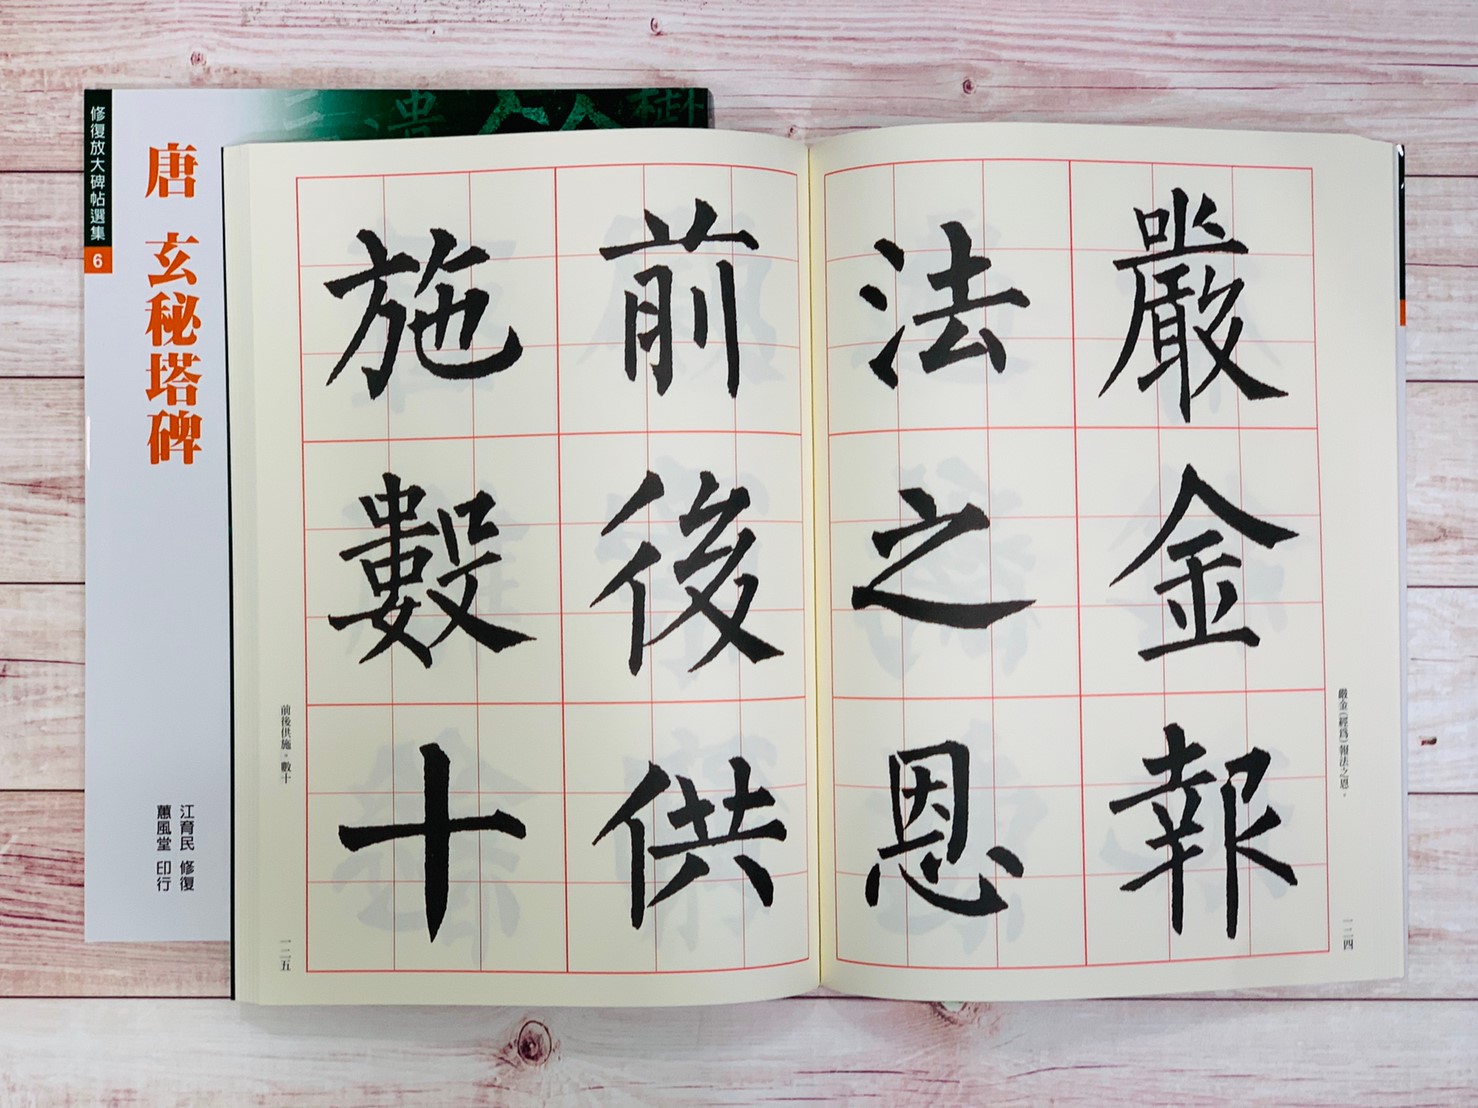 修復放大碑帖選集
6
唐 玄秘塔碑
江育民 修復
蕙風堂 印行
嚴金報
法之恩
嚴金(經爲)報法之恩。
一二四
前後供
施數十
前後供施。數十
一二五